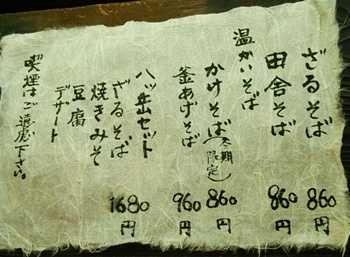 ざるそば 860円
田舎そば 860円
温かいそば
かけそば(冬期限定) 860円
釜あげそば 960円
八ヶ岳セット 1680円
ざるそば
焼きみそ
豆腐
デザート
喫煙はご遠慮下さい。